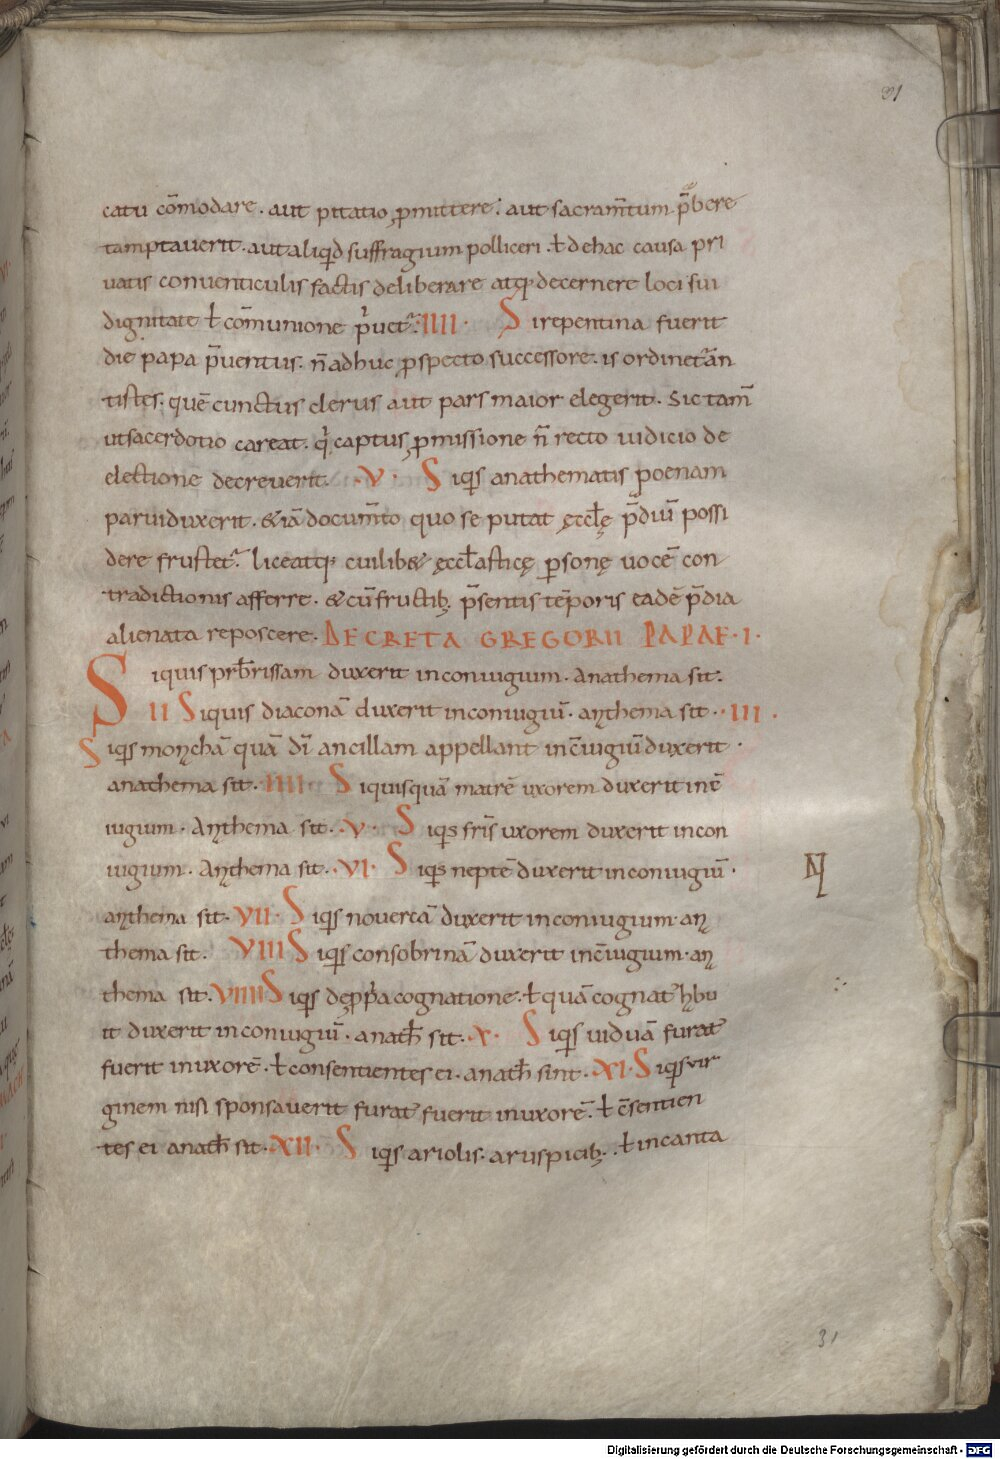 31
catu cōmodare . aut pitatio ꝓmittere . aut sacram̄tum p̄bere
tamptaverit . aut aliqid suffragium polliceri . ł de hac causa pri
uatis conuenticulis factis deliberare atq; decernere loci sui
dignitate ł cōmunione p̄uet᷑ . IIII . Si repentina fuerit
die papa p̄uentus . n̄ adhuc ꝓspecto successore . is ordinet᷑ an
tistes . quē cunctus clerus aut pars maior elegerit . Sic tam̄
ut sacerdotio careat . q̇ captus ꝓmissione n̄ recto iudicio de
electione decreverit . V . Siqis anathematis poenam
parui duxerit . & iā docum̄to quo se putat ęccłę p̄diū possi
dere frustet᷑ . liceatq; cuilib& ęccłasticę ꝑsonę uocē con
tradictionis afferre . & cū fructib; p̄sentis tēporis eadē p̄dia
alienata reposcere . DECRETA GREGORII PAPAE . I .
Siquis prb̄rissam duxerit in coniugium . Anathema sit .
II Siquis diaconā duxerit in coniugiū . anthema sit . . III .
Siqis monchā quā dī ancillam appellant in c̄iugiū duxerit .
anathema sit . IIII . Siquis quā matrē uxorem duxerit in c̄
iugium . Anthema sit . . V . Siqis frīs uxorem duxerit in con
iugium . Anthema sit . . VI . Siqis neptē duxerit in coniugiū .
anthema sit . VII . Siqis nouercā duxerit in coniugium . an
thema sit . VIII Siqis consobrinā duxerit in c̄iugium . an
thema sit . VIIII Siqis de ꝓpria cognatione . ł quā cognat᷑ hbu
it duxerit in coniugiū . anath̄ sit . X . Siqis uiduā furat᷑
fuerit in uxorē . ł consentientes ei . anath̄ sint . XI . Siqis vir
ginem nisi sponsaverit furat᷑ fuerit in uxorē . ł c̄sentien
tes ei anath̄ sit . XII . Siqis ariolis . aruspicib; . ł incanta
31
Digitalisierung gefördert durch die Deutsche Forschungsgemeinschaft - DFG